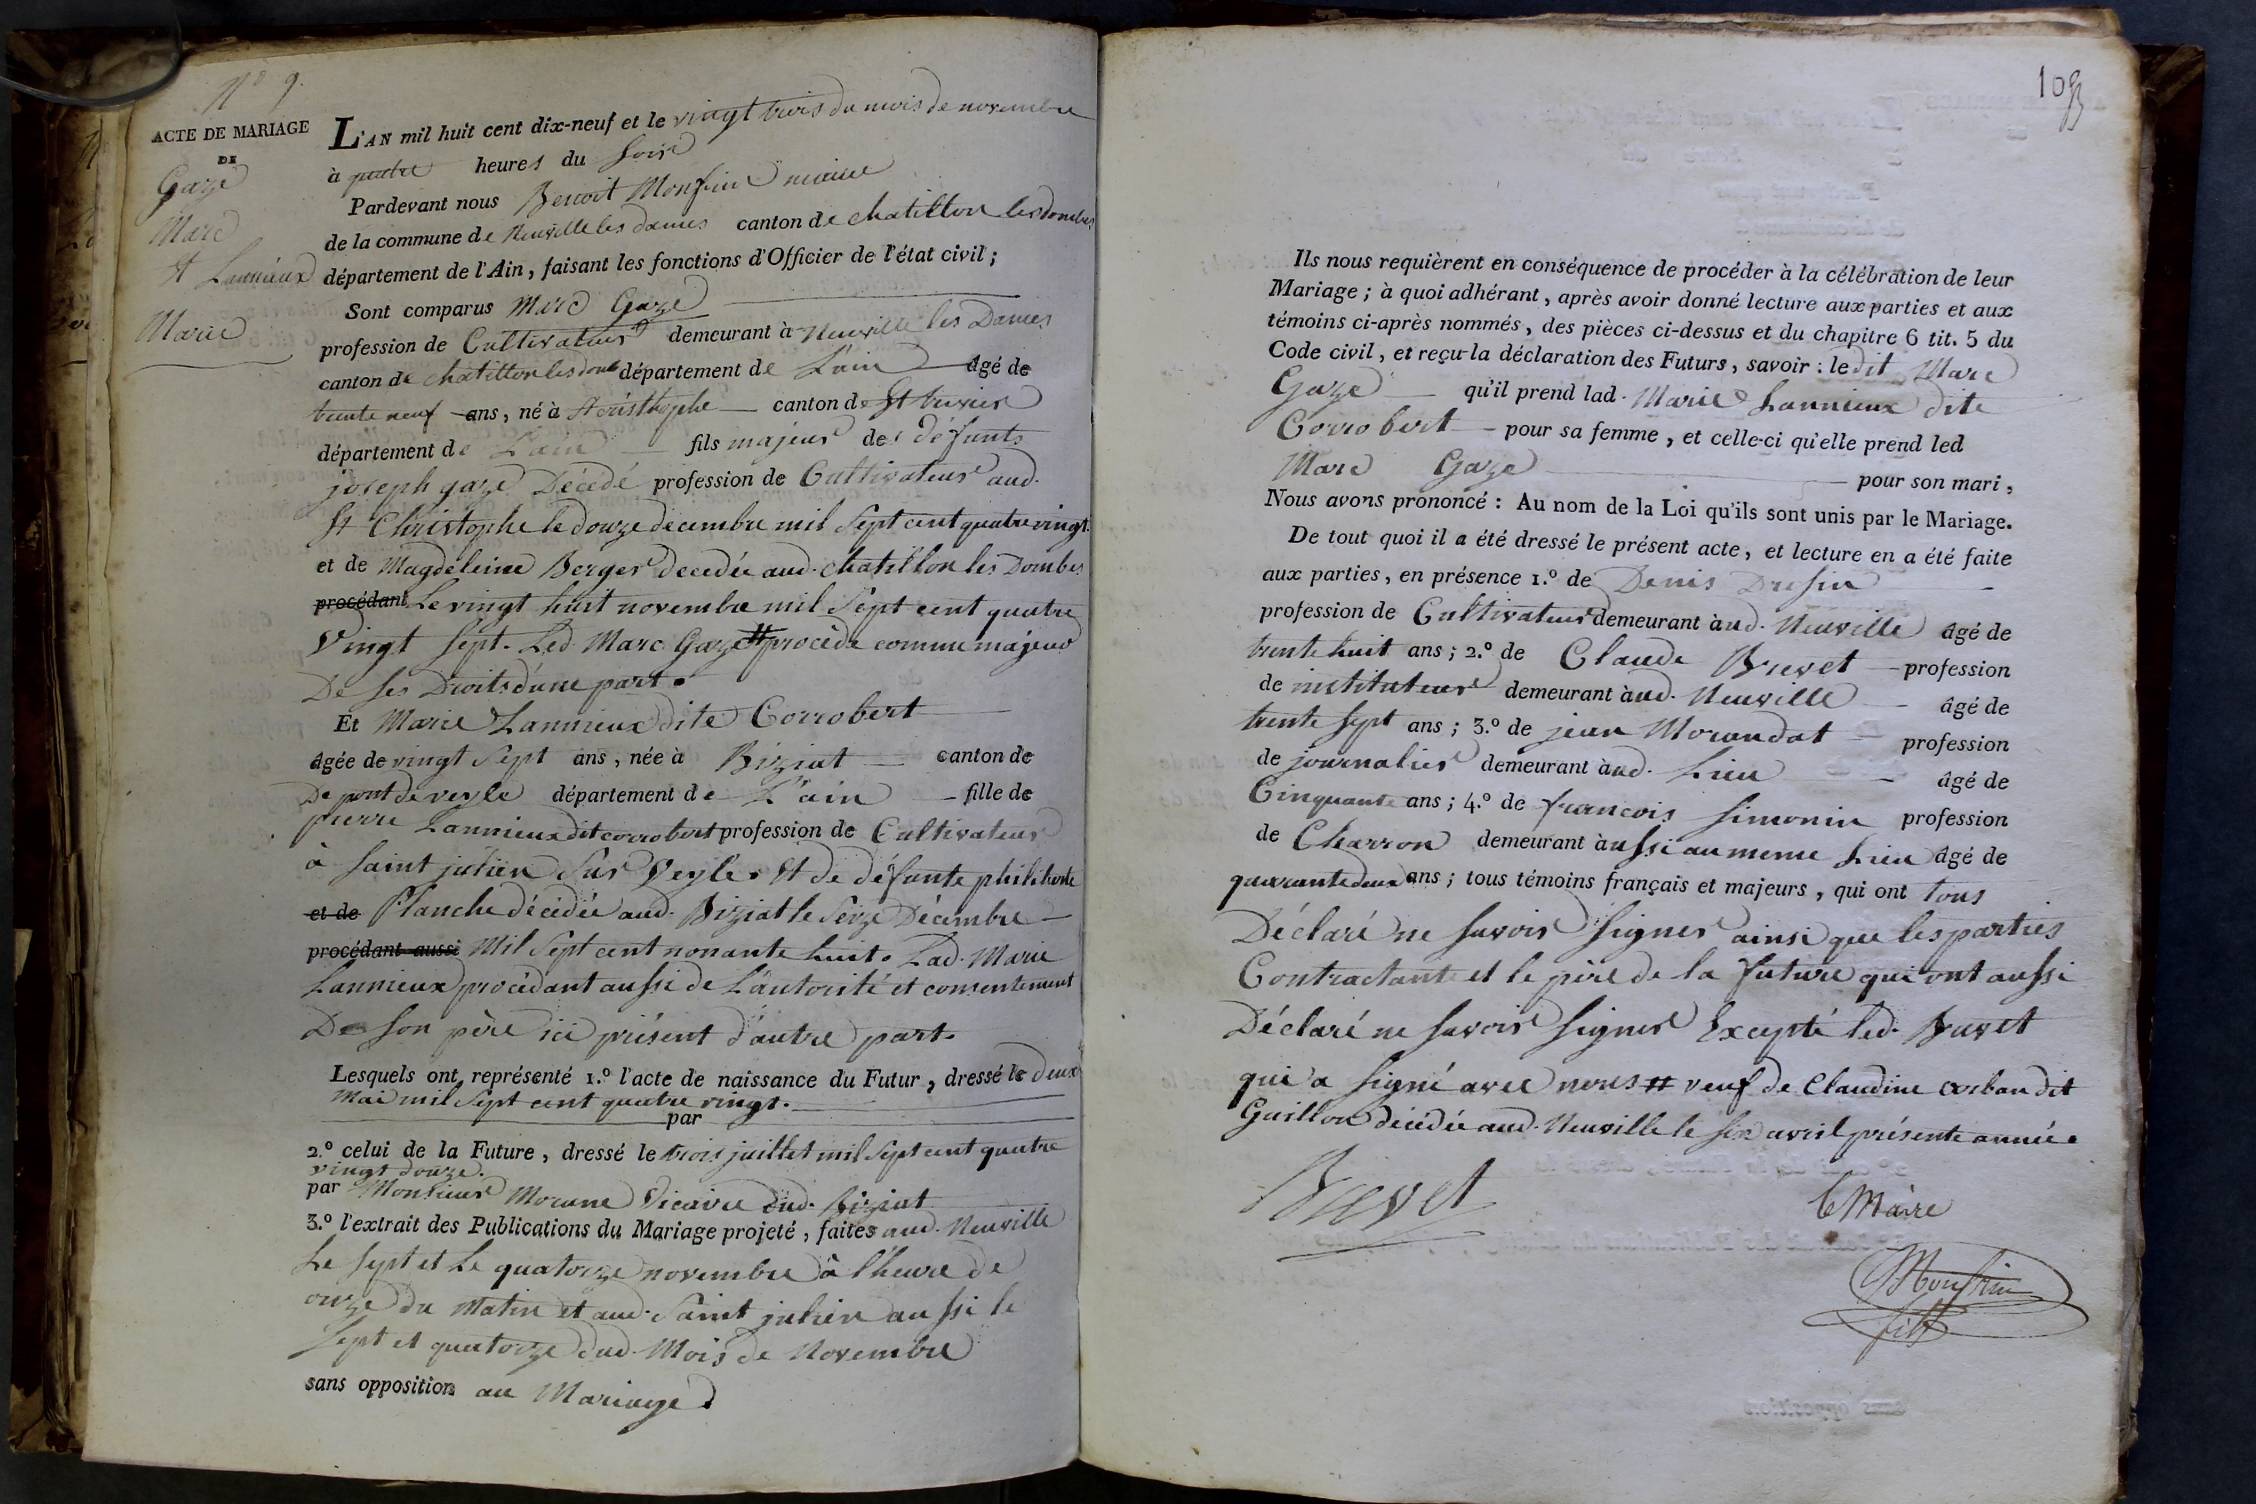 N° 9.
ACTE DE MARIAGE
DE
Gaze
Marc
et Lannieux
Marie
L'AN mil huit cent dix-neuf et le vingt trois du mois de novembre
à quatre heures du soir
Pardevant nous Benoit Monfrin maire
de la commune de Neuville les dames canton de chatillon les dombes
département de l'Ain, faisant les fonctions d'Officier de l'état civil;
Sont comparus Marc Gaze
profession de Cultivateur demeurant à Neuville les Dames
canton de chatillon les domb département de L'ain âgé de
trente neuf ans, né à St cristhophe canton de St trivier
département de L'ain fils majeur des défunts
joseph gaze Décédé profession de Cultivateur aud.
St Christophe le douze decembre mil Sept cent quatre vingt
et de Magdeleine Berger decedée aud. chatillon les Dombes
procédant Le vingt huit novembre mil Sept cent quatre
Vingt Sept. Led. Marc Gaze # procède comme majeur
De Ses Droits d'une part.
Et Marie Lannieux dite Corrobert
âgée de vingt Sept ans, née à Biziat canton de
De pont de veyle département de L'ain fille de
pierre Lannieux dit corrobert profession de Cultivateur
à Saint julien Sur Veyle. Et de défunte philiberte
et de Planche décédée aud. Biziat le Seize Décembre
procédant aussi Mil Sept cent nonante huit. Lad. Marie
Lannieux procédant aussi de L'autorité et consentement
De Son père ici présent d'autre part.
Lesquels ont représenté 1.° l'acte de naissance du Futur, dressé le deux
Mai mil Sept cent quatre vingt.
par
2.° celui de la Future, dressé le trois juillet mil Sept cent quatre
vingt douze.
par Monsieur Morane Vicaire dud. Biziat
3.° l'extrait des Publications du Mariage projeté, faites aud. Neuville
Le Sept et Le quatorze novembre à l'heure de
onze du Matin et aud. Saint julien aussi le
Sept et quatorze dud. Mois de Novembre
sans opposition au Mariage.
103
Ils nous requièrent en conséquence de procéder à la célébration de leur
Mariage; à quoi adhérant, après avoir donné lecture aux parties et aux
témoins ci-après nommés, des pièces ci-dessus et du chapitre 6 tit. 5 du
Code civil, et reçu la déclaration des Futurs, savoir: ledit Marc
Gaze qu'il prend lad. Marie Lannieux dite
Corrobert pour sa femme, et celle-ci qu'elle prend led
Marc Gaze pour son mari,
Nous avons prononcé: Au nom de la Loi qu'ils sont unis par le Mariage.
De tout quoi il a été dressé le présent acte, et lecture en a été faite
aux parties, en présence 1.° de Denis
profession de Cultivateur demeurant àud. Neuville âgé de
trente huit ans; 2.° de Claude Brevet profession
de instituteur demeurant àud. Neuville âgé de
trente Sept ans; 3.° de jean Morandat profession
de journalier demeurant àud. Lieu âgé de
Cinquante ans; 4.° de francois Simonin profession
de Charron demeurant àussi au meme Lieu âgé de
quarante deux ans; tous témoins français et majeurs, qui ont tous
Déclaré ne Savoir Signer ainsi que les parties
Contractante et le père de la future qui ont aussi
Déclaré ne Savoir Signer Excepté led. Brevet
qui a Signé avec nous # veuf de Claudine corban dit
Guillon décédée aud. Neuville le Six avril présente année.
Brevet
le Maire
Monfrin